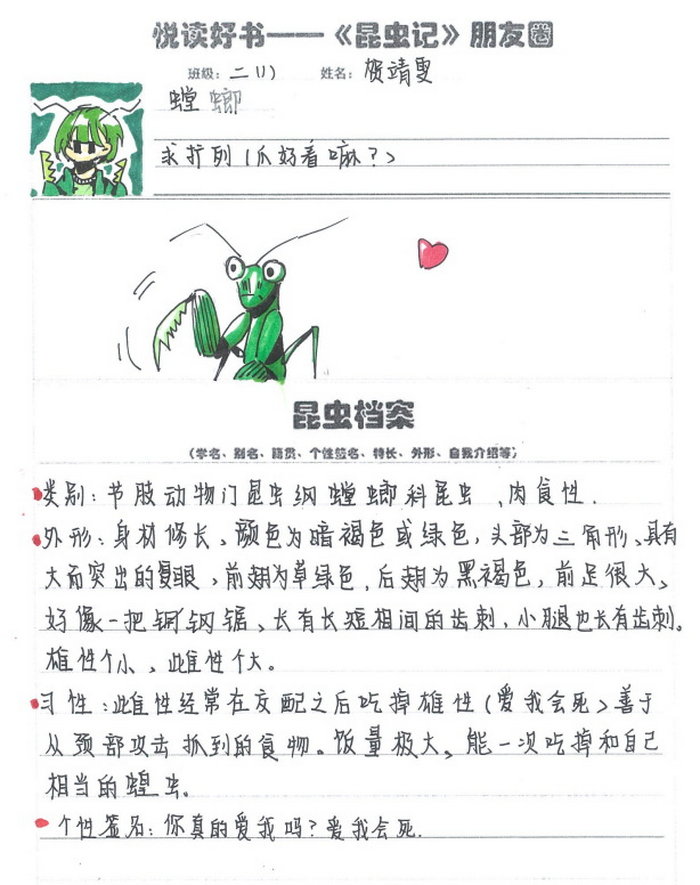 悦读好书——《昆虫记》朋友圈
班级：二（1） 姓名：贺靖雯
螳螂
求扩列（爪好看嘛？）
昆虫档案
（学名、别名、籍贯、个性签名、特长、外形、自我介绍等）
类别：节肢动物门昆虫纲螳螂科昆虫，肉食性.
外形：身材修长、颜色为暗褐色或绿色，头部为三角形、具有
大而突出的复眼，前翅为草绿色，后翅为黑褐色，前足很大、
好像一把钢锯、长有长短相间的齿刺，小腿也长有齿刺。
雄性个小、雌性个大。
习性：雌性经常在交配之后吃掉雄性（爱我会死）善于
从颈部攻击抓到的食物。饭量极大、能一次吃掉和自己
相当的蝗虫。
个性签名：你真的爱我吗？爱我会死.